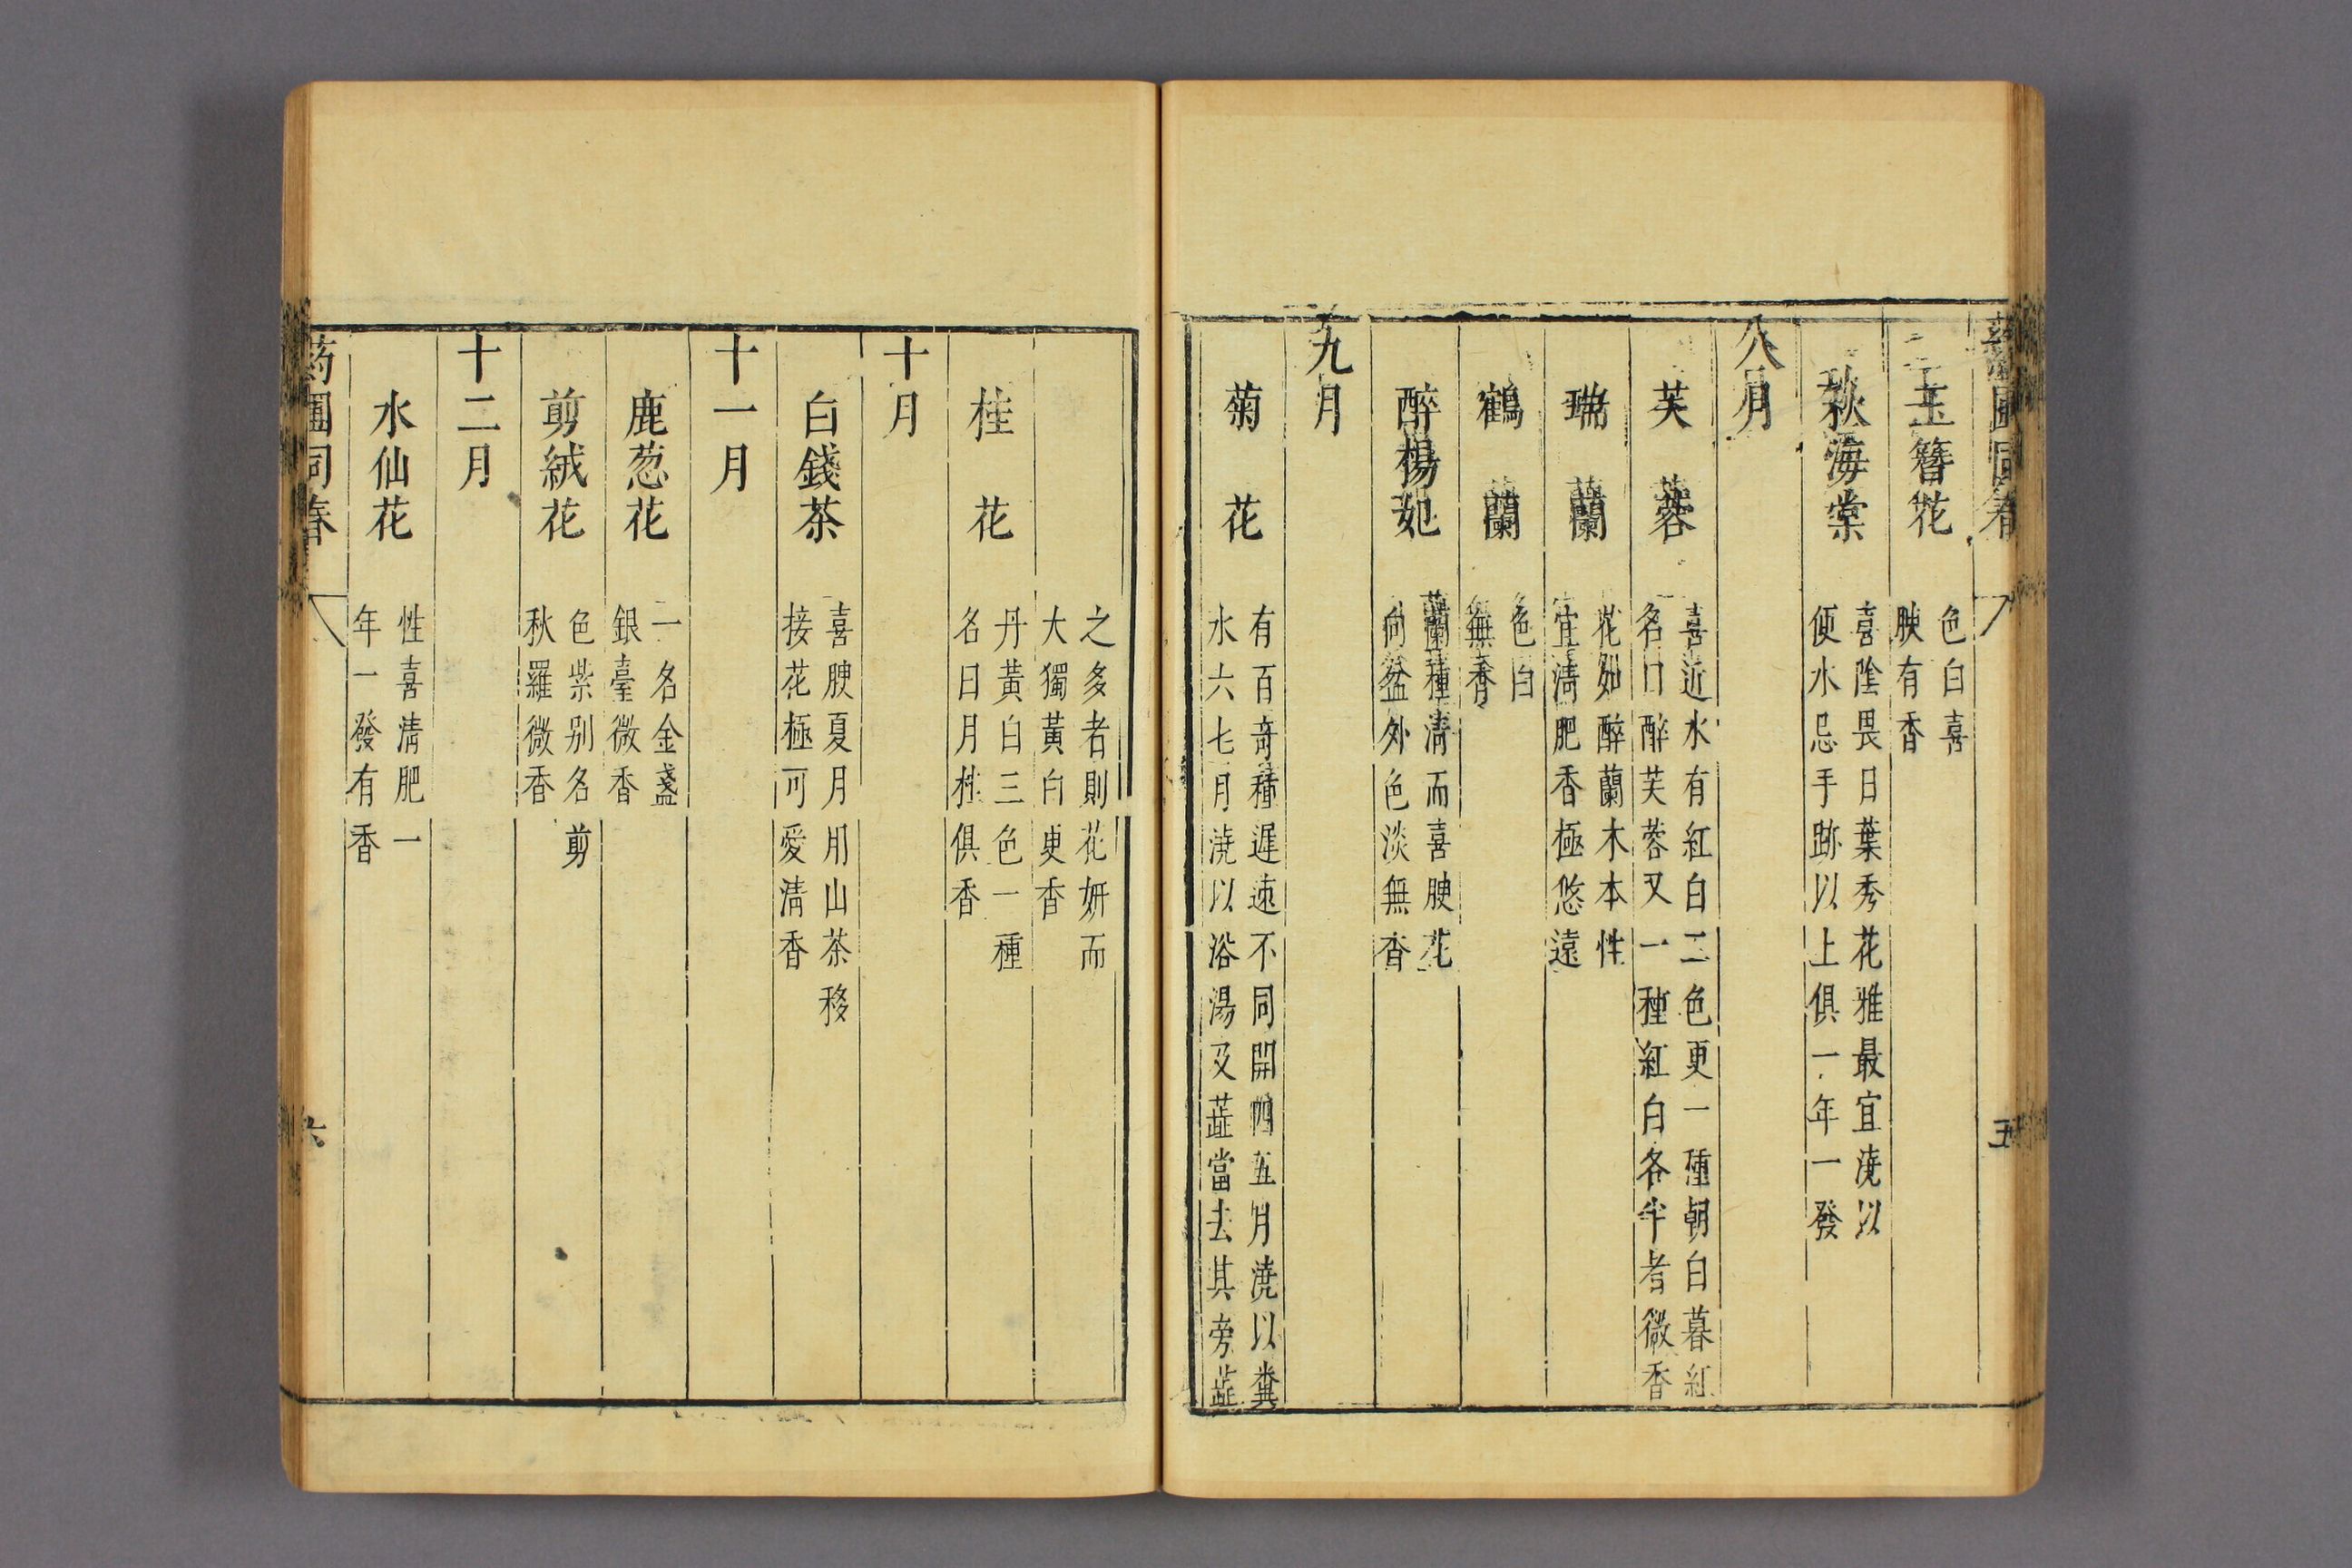 玉簪花 色白喜
腴有香
秋海棠 喜陰畏日葉秀花雅最宜澆以
便水忌手跡以上俱一年一發
八月
芙蓉 喜近水有紅白二色更一種朝白暮紅
名曰醉芙蓉又一種紅白各半者微香
瑞蘭 花如醉蘭木本性
宜清肥香極悠遠
鶴蘭 色白
無香
醉楊妃 蘭種清而喜腴花
向盆外色淡無香
九月
菊花 有百奇種遲速不同開四五月澆以糞
水六七月澆以浴湯及蕋當去其旁蕋
之多者則花妍而
大獨黃白更香
桂花 丹黃白三色一種
名曰月桂俱香
十月
白錢茶 喜腴夏月用山茶移
接花極可愛清香
十一月
鹿葱花 一名金盞
銀臺微香
剪絨花 色紫别名剪
秋羅微香
十二月
水仙花 性喜清肥一
年一發有香
六